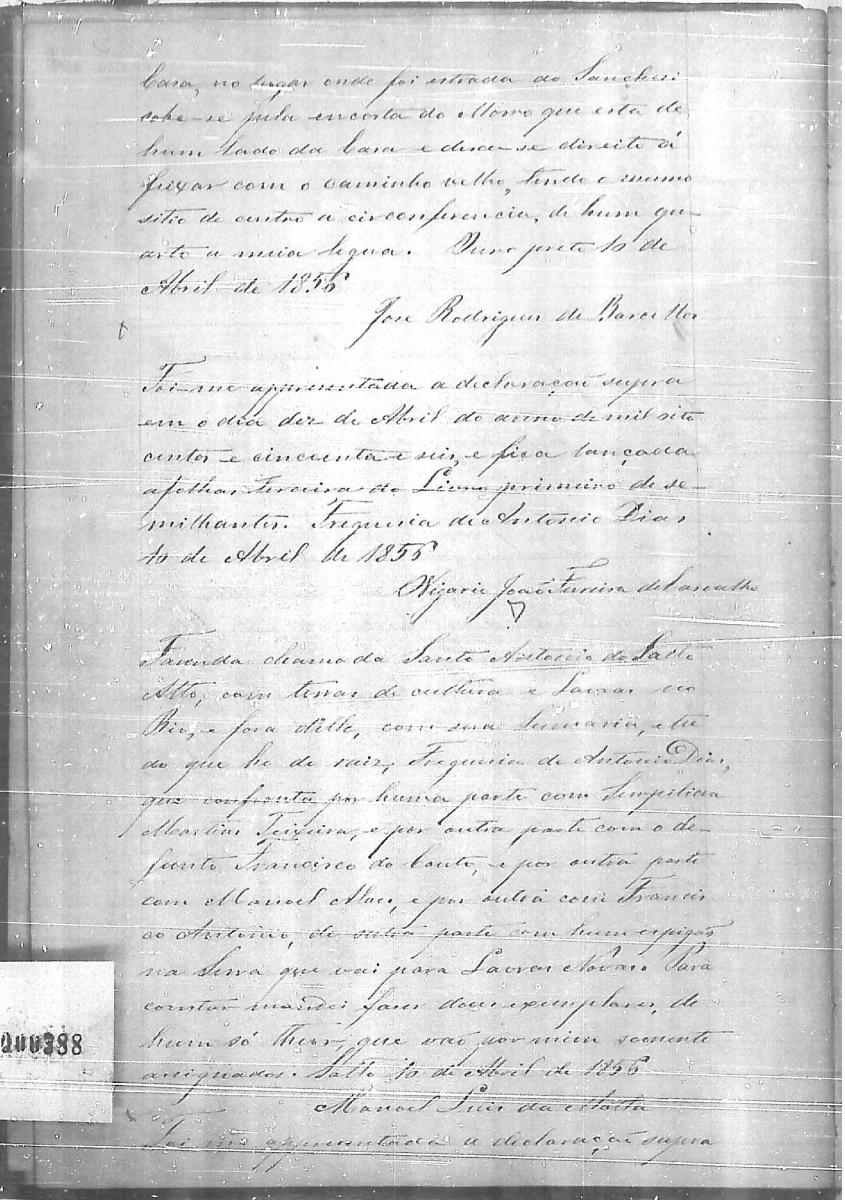 Casa, no lugar onde foi estrada do
sobe-se pela encosta do Morro que está de
hum lado da Casa e desce-se direito á
feixar com o caminho velho, tendo o mesmo
sitio de centro a circonferencia, de hum qu-
arto a meia legua. Ouro preto 10 de
Abril de 1856
Jose Rodrigues de Barcellos
Foi-me appresentada a declaração supra
em o dia dez de Abril do anno de mil oito
centos e cincoenta e seis, e fica lançada
afolhas terceira do Livro primeiro de se-
milhantes. Freguesia de Antonio Dias
10 de Abril de 1856
O Vigario João Ferreira de Carvalho
Fazenda chamada Santo Antonio do Salto
Alto, com terras de cultura e Lavras no
Rio, e fora d'elle, com sua Sesmaria, e tu-
do que he de raiz, Freguesia de Antonio Dias,
que confronta por huma parte com
Martins Teixeira, e por outra parte com o de-
funto Francisco do Couto, e por outra parte
com Manoel Alves, e por outra com Francis-
co Antonio, de outra parte com hum espigão
na Serra que vai para Lavras Novas. Para
constar mandei fazer dous exemplares, de
hum só theor, que vão por mim somente
assignados. Salto 10 de Abril de 1856
Manoel Luis da Motta
Foi-me appresentada a declaração supra
000388